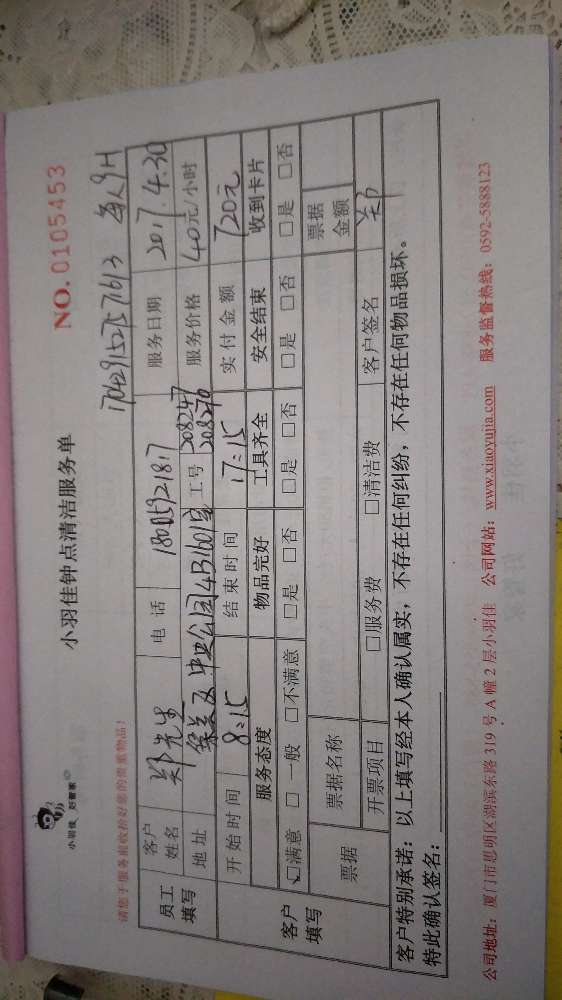 小羽佳 好管家
小羽佳钟点清洁服务单
NO. 0105453
请您于服务前收拾好您的贵重物品!
170429152571613 每人9H
员工填写
客户姓名 郑先生 电话 18005921817 服务日期 2017.4.30
地址 集美区中央公园4B1601室 工号 208247 208270 服务价格 40元/小时
开始时间 8:15 结束时间 17:15 实付金额 720元
客户填写
服务态度 物品完好 工具齐全 安全结束 收到卡片
☑满意 □一般 □不满意 □是 □否 □是 □否 □是 □否 □是 □否
票据 票据名称 票据金额
开票项目 □服务费 □清洁费 客户签名 郑
客户特别承诺:以上填写经本人确认属实,不存在任何纠纷,不存在任何物品损坏。
特此确认签名:
公司地址:厦门市思明区湖滨东路 319 号 A 幢 2 层小羽佳 公司网站:www.xiaoyujia.com 服务监督热线:0592-5888123